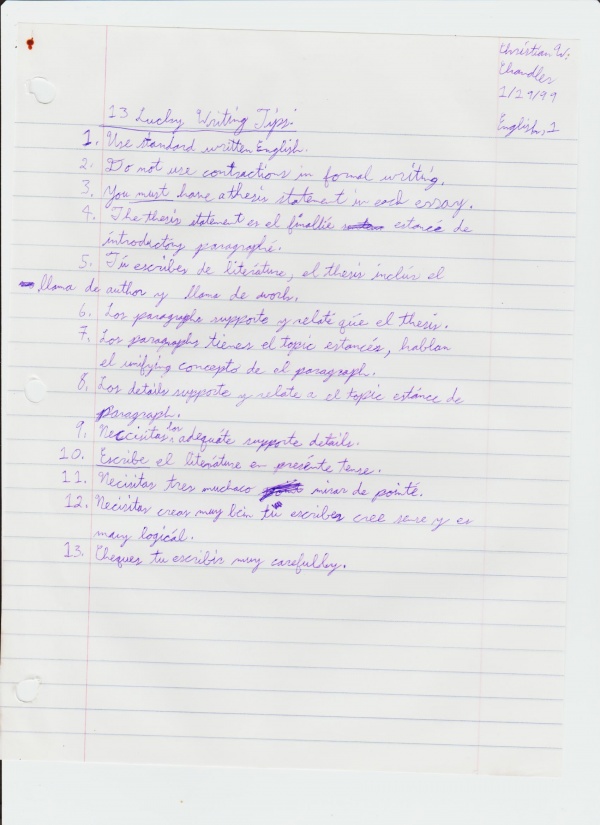 Christian W.
Chandler
1/29/99
English, 1
13 Lucky Writing Tips.
1. Use standard written English.
2. Do not use contractions in formal writing.
3. You must have a thesis statement in each essay.
4. The thesis statement es el finallié estancé de
introductory paragraphé.
5. Tú escribes de literáture, el thesis inclús el
llama de author y llama de work.
6. Los paragraphs supporte y relaté qúe el thesis.
7. Los paragraphs tienes el topic estancés, hablan
el unifying concepto de el paragraph.
8. Los details supporte y relate a el topic estánce de
paragraph.
9. Neccisitas los adequáte supporte details.
10. Escribe el literáture en presénte tense.
11. Necisitas tres muchaco mirar de pointé.
12. Necisitas creos muy bein tú escribes cree sense y es
muy logicál.
13. Cheques tu escribir muy carefulley.